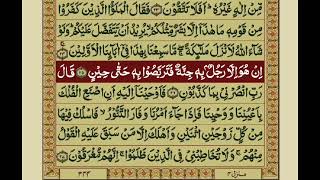 مِّنْ اِلٰهٍ غَيْرُهٗ ؕ اَفَلَا تَتَّقُوْنَ ﴿۲۳﴾ فَقَالَ الْمَلَؤُا الَّذِيْنَ كَفَرُوْا
مِنْ قَوْمِهٖ مَا هٰذَاۤ اِلَّا بَشَرٌ مِّثْلُكُمْ ۙ يُرِيْدُ اَنْ يَّتَفَضَّلَ عَلَيْكُمْ ؕ وَلَوْ
شَآءَ اللّٰهُ لَاَنْزَلَ مَلٰٓئِكَةً ۖۚ مَّا سَمِعْنَا بِهٰذَا فِيْۤ اٰبَآئِنَا الْاَوَّلِيْنَ ﴿۲۴﴾
اِنْ هُوَ اِلَّا رَجُلٌۢ بِهٖ جِنَّةٌ فَتَرَبَّصُوْا بِهٖ حَتّٰى حِيْنٍ ﴿۲۵﴾ قَالَ
رَبِّ انْصُرْنِيْ بِمَا كَذَّبُوْنِ ﴿۲۶﴾ فَاَوْحَيْنَاۤ اِلَيْهِ اَنِ اصْنَعِ الْفُلْكَ
بِاَعْيُنِنَا وَوَحْيِنَا فَاِذَا جَآءَ اَمْرُنَا وَفَارَ التَّنُّوْرُ ۙ فَاسْلُكْ فِيْهَا
مِنْ كُلٍّ زَوْجَيْنِ اثْنَيْنِ وَاَهْلَكَ اِلَّا مَنْ سَبَقَ عَلَيْهِ الْقَوْلُ
مِنْهُمْ ۚ وَلَا تُخَاطِبْنِيْ فِي الَّذِيْنَ ظَلَمُوْا ۚ اِنَّهُمْ مُّغْرَقُوْنَ ﴿۲۷﴾
منزل ۴
۳۴۴